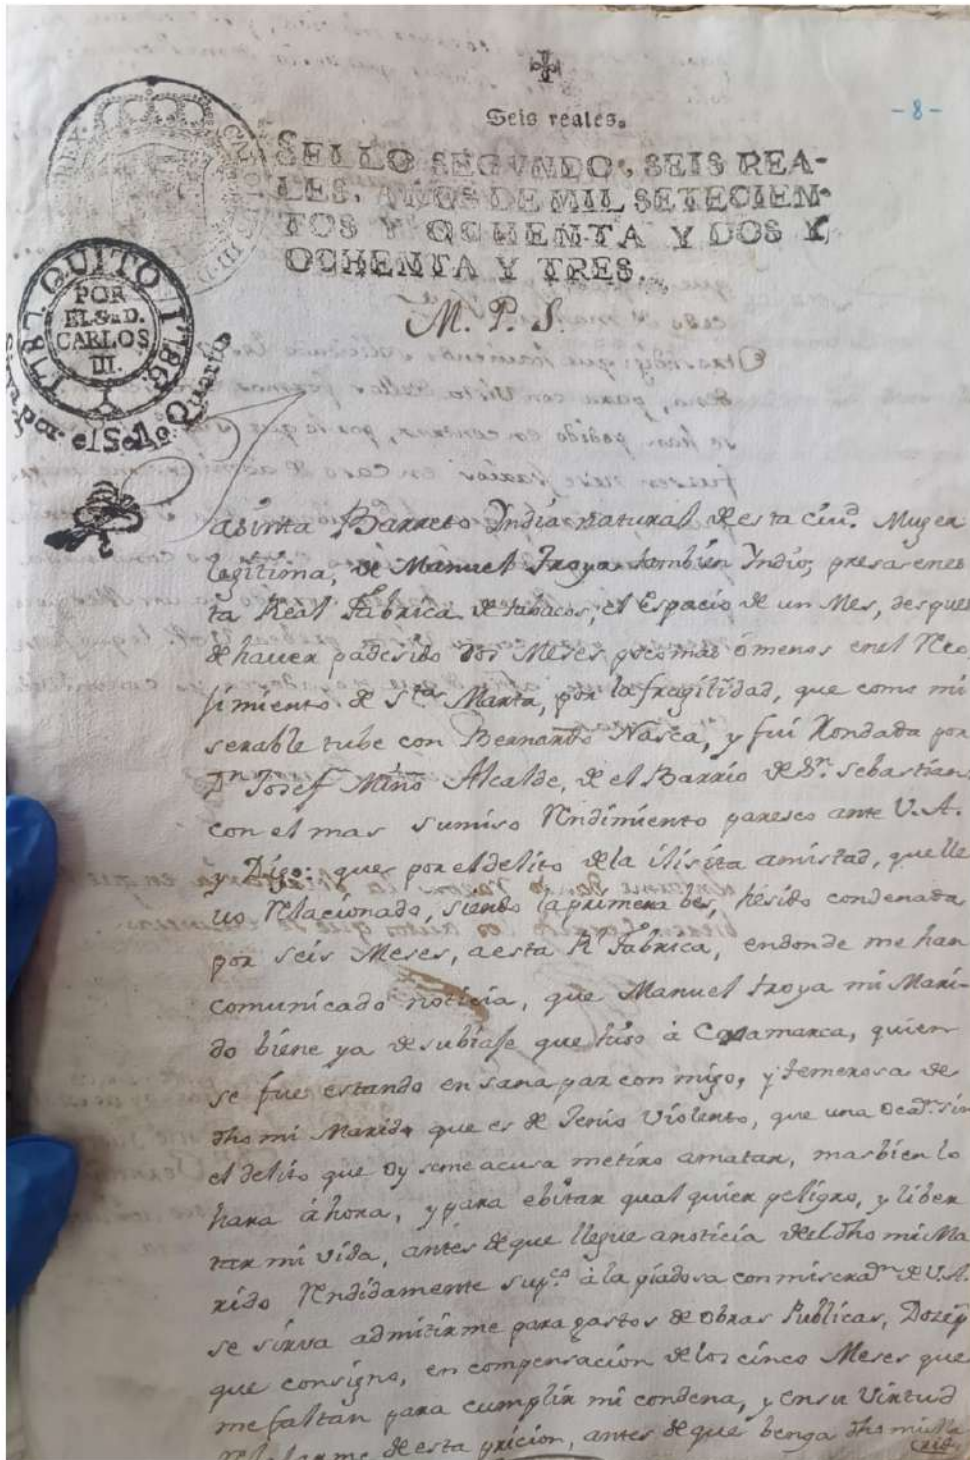 Seis reales.
- 8 -
SELLO SEGVNDO, SEIS REA-
LES, AÑOS DE MIL SETECIEN-
TOS Y OCHENTA Y DOS Y
OCHENTA Y TRES.
1787. QUITO 1786.
POR
EL S. D.
CARLOS
III.
Sirva por el Sello Quarto
M. P. S.
Jasinta Barreto Yndia natural de esta ciud. Muger
legitima, de Manuel Troya tambien Yndio; presa en es
ta Real Fabrica de tabacos, el Espacio de un Mes, despues
de haver padesido dos Meses poco mas ó menos en el Reco
jimiento de Sta. Marta, por la fragilidad, que como mi
serable tube con Bernardo Nasca, y fui Rondada por
Dn. Josef Miño Alcalde, de el Barrio de Sn. Sebastian,
con el mas sumiso Rendimiento paresco ante V.A.
y Digo: que por el delito de la ilisita amistad, que lle
vo Relacionado, siendo la primera bes, hé sido condenada
por seis Meses, a esta Rl. Fabrica, en donde me han
comunicado noticia, que Manuel Troya mi Mari-
do biene ya de su biaje que hiso à Caxamarca, quien
se fue estando en sana paz con migo, y temerosa de
dho mi Marido que es de Jenio Violento, que una ocan. sin
el delito que oy se me acusa me tiro a matar, mas bien lo
hara à hora, y para ebitar qual quier peligro, y liber
tar mi vida, antes de que llegue a noticia del dho mi Ma
rido Rendidamente supco. à la piadosa conmiseran. de V.A.
se sirva admitirme para gastos de obras Publicas, Doze ps
que consigno, en compensacion de los cinco Meses que
me faltan para cumplir mi condena, y en su Virtud
de esta pricion, antes de que benga dho mi Ma
rido